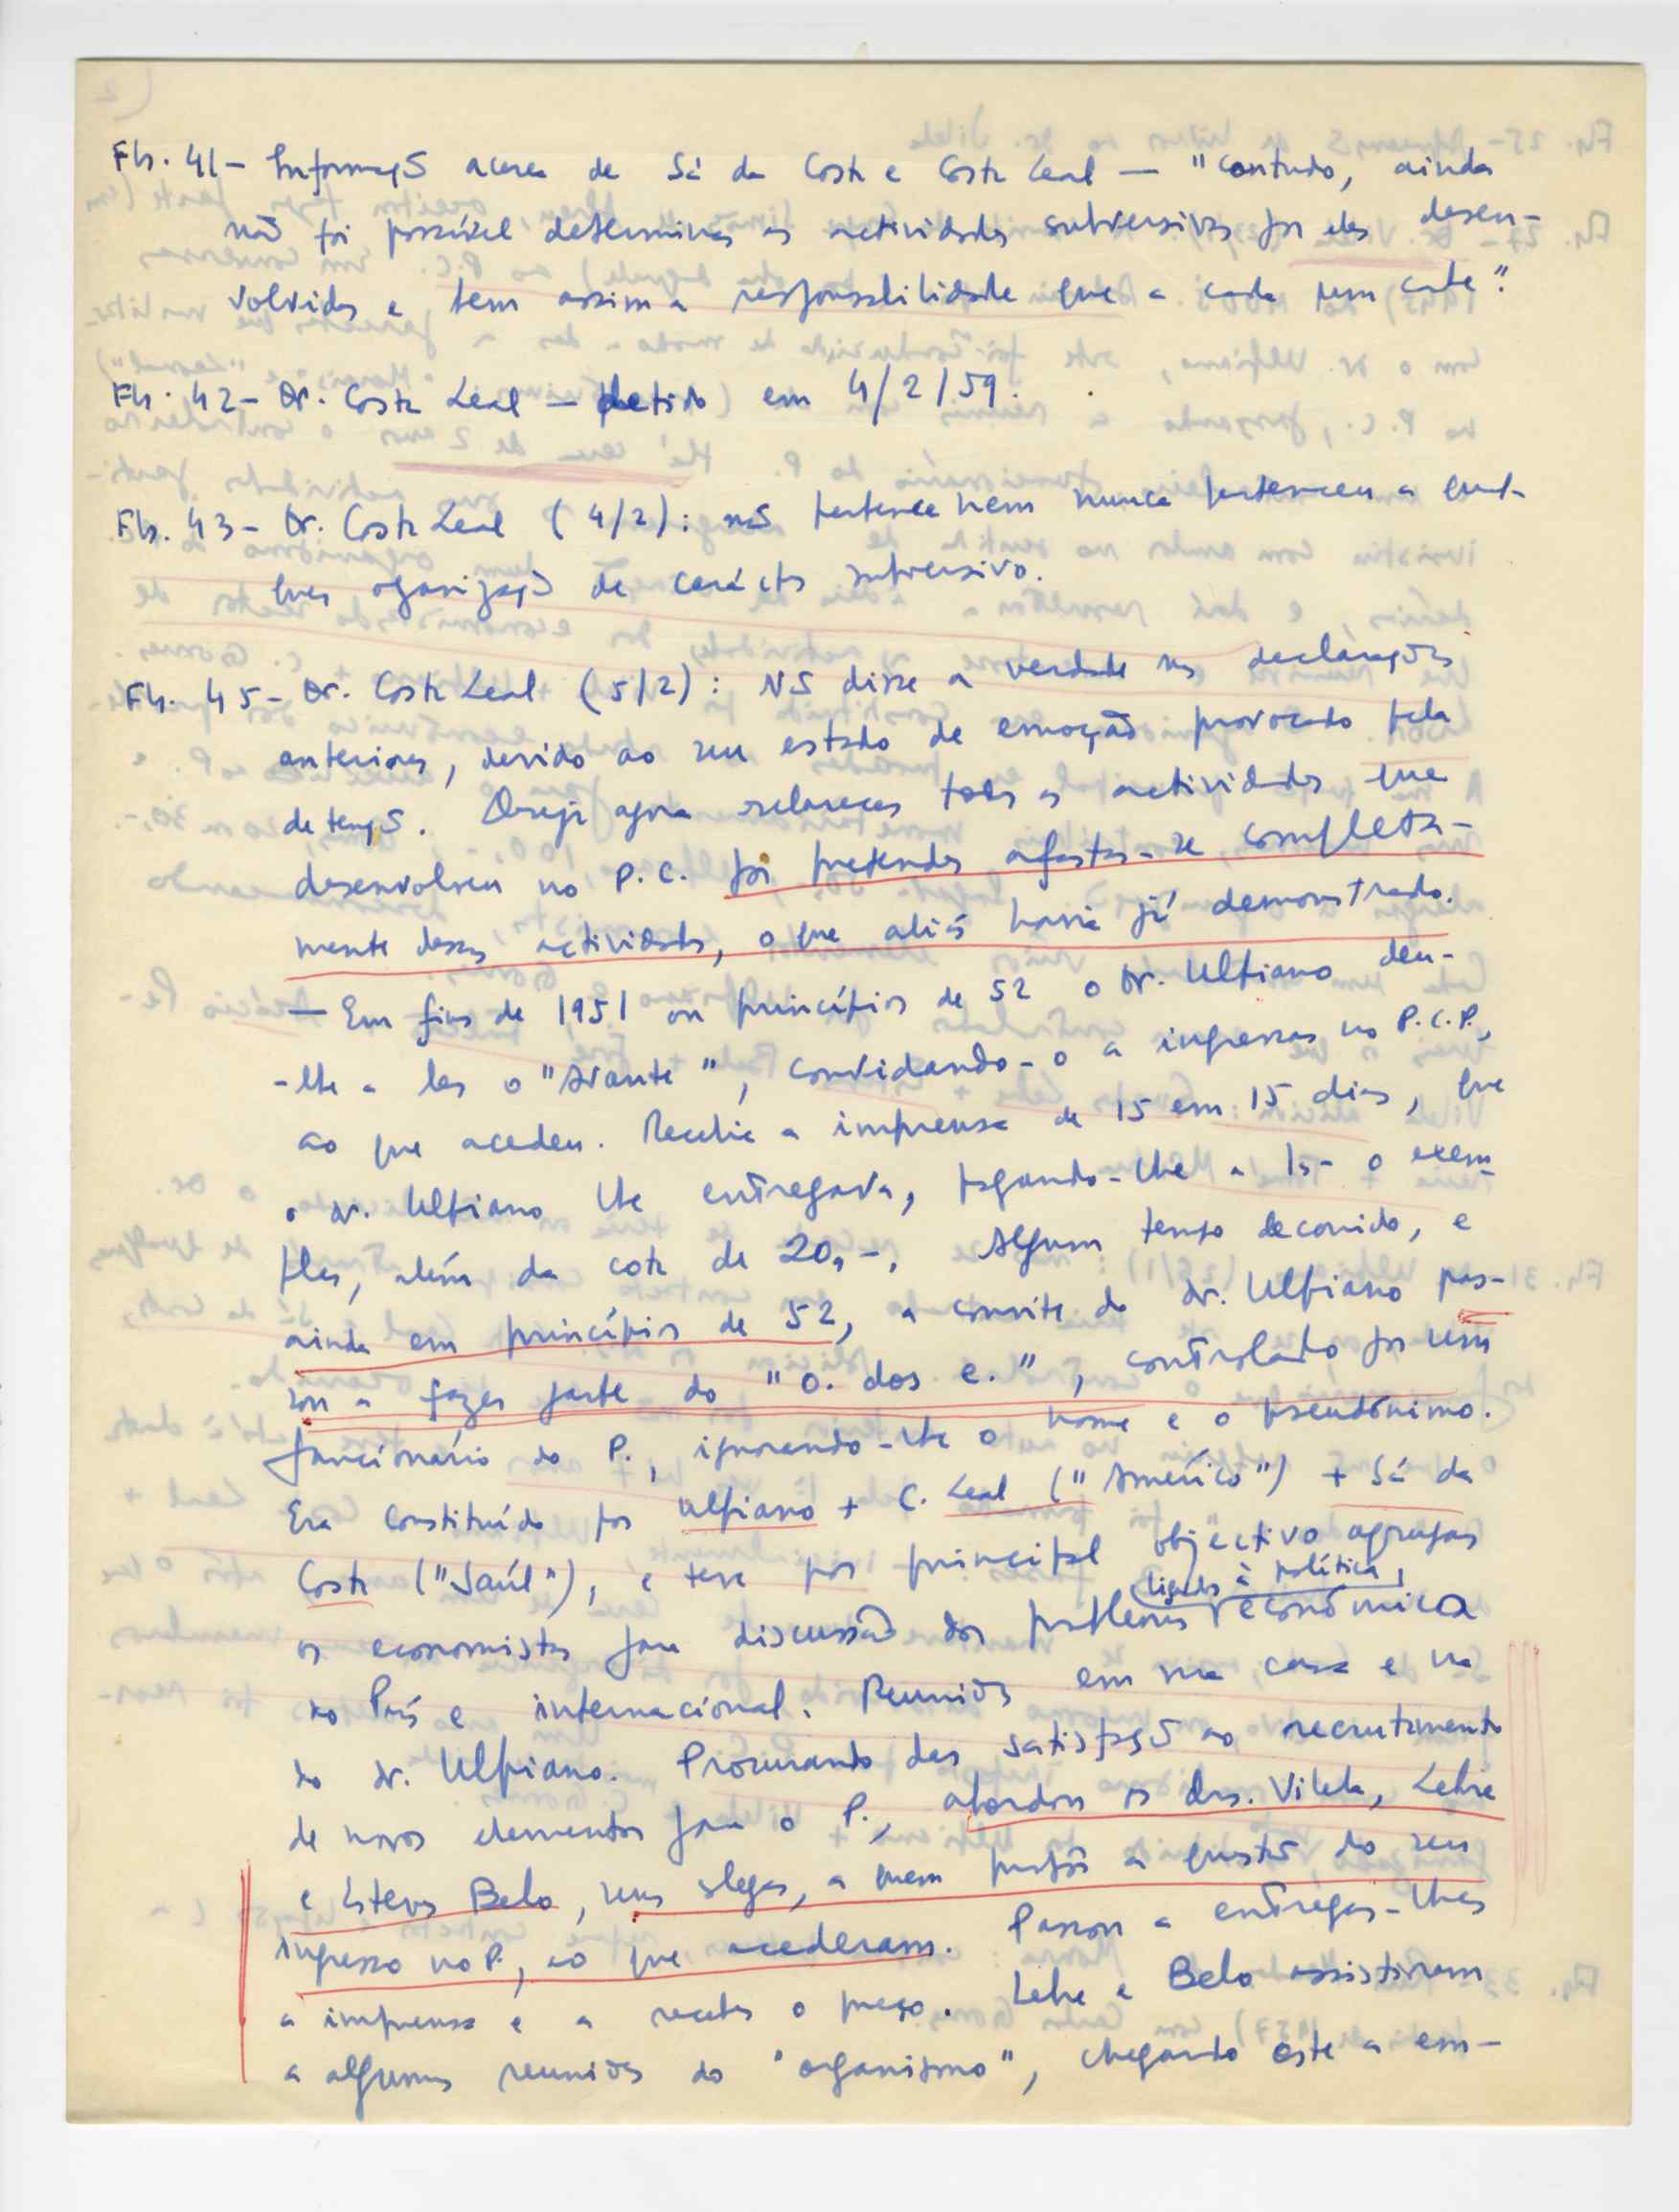 Fls. 41 - Informaçõ acerca de Sá da Costa e Costa Leal — "contudo, ainda
não foi possível determinar as actividades subversivas por eles desen-
volvidas e bem assim a responsabilidade que a cada um cabe".
Fls. 42 - Dr. Costa Leal — detido em 4/2/59.
Fls. 43 - Dr. Costa Leal (4/2): não pertence nem nunca pertenceu a qual-
quer organização de carácter subversivo.
Fls. 45 - Dr. Costa Leal (5/2): Não disse a verdade nas declarações
anteriores, devido ao seu estado de emoção provocado pela
detenção. Deseja agora esclarecer todas as actividades que
desenvolveu no P.C. pois pretende afastar-se completa-
mente dessas actividades, o que aliás havia já demonstrado.
— Em fins de 1951 ou princípios de 52 o Dr. Ulpiano deu-
-lhe a ler o "Avante", convidando-o a ingressar no P.C.P.,
ao que acedeu. Recebia a imprensa de 15 em 15 dias, que
o Dr. Ulpiano lhe entregava, pagando-lhe a 1$- o exem-
plar, além da cota de 20$-. Algum tempo decorrido, e
ainda em princípios de 52, a convite do Dr. Ulpiano pas-
sou a fazer parte do "O. dos e.", controlado por um
funcionário do P., ignorando-lhe o nome e o pseudónimo.
Era constituído por Ulpiano + C. Leal ("Américo") + Sá da
Costa ("Saúl"), e teve por principal objectivo agrupar
os economistas para discussão dos problemas ligados à política económica
do País e internacional. Reuniões em sua casa e na
do Dr. Ulpiano. Procurando dar satisfação ao recrutamento
de novos elementos para o P., abordou os drs. Vilela, Lebre
e Esteves Belo, seus colegas, a quem propôs a questão do seu
ingresso no P., ao que acederam. Passou a entregar-lhes
a imprensa e a receber o preço. Lebre e Belo assistiram
a algumas reuniões do "organismo", chegando este a em-